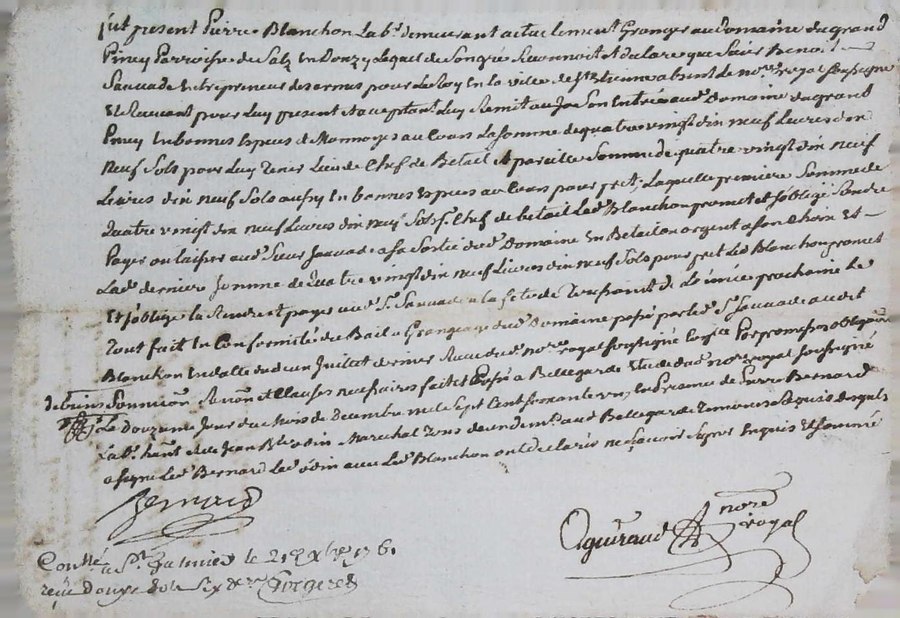 fut present Pierre Blanchon Lab.r demeurant actuellement Granger au domaine du grand
Piney Parroisse de Salz en donzy Lequel de Son gré Reconnoit et declare que Sieur Benoit
Sauvade Entrepreneur des armes pour Le Roy En la ville de St Etienne absent le no.re royal soussigné
Et Recevant pour Luy present et acceptant Luy Remit au Jour Son Entrée aud. Domaine du grand
Piney En bonnes Especes de Monnoyes au Cours La Somme de quatre vingt dix neuf Livres dix
neuf Sols pour Luy Tenir Lieu de Chef de Betail et pareille Somme de quatre vingt dix neuf
Livres dix neuf Sols aussy En bonnes Especes au Cours pour pret, Laquelle premiere Somme de
Quatre vingt dix neuf Livres dix neuf Sols p.r Chef de betail Led. Blanchon promet et s'oblige
Payer ou laisser aud. Sieur Sauvade a sa Sortie dud. Domaine En Betail ou argent a Son Choix Et
Lad. derniere Somme de Quatre vingt dix neuf Livres dix neuf Sols pour pret Led. Blanchon promet
Et s'oblige La Rendre et payer aud. Sr. Sauvade a la fete de Toussaint de L'année prochaine Le
Tout fait En Conformité du Bail a Grangeage dud. Domaine passé par led. Sr. Sauvade audit
Blanchon En datte du d. un Juillet dernier Reçu du d. no.re royal soussigné Par promesses obligations
de biens Soumission Renon.on et Clauses necessaires fait et Passé a Bellegarde Etude dud. no.re royal soussigné
Le douzieme Jour du Mois de decembre mil Sept Cent Soixante un, En Presence de Pierre Bernard
Lab.r hant et de Jean B.te odin Marechal Tous deux dem.t aud. Bellegarde Temoins Requis desquels
a signé Led. Bernard Led. odin avec Led. Blanchon ont declaré ne Sçavoir signer Enquis Et Sommé
Bernard
Aguiraud no.re royal
Con.lé a St. Galmier le 21 Xbre 1761
reçu douze sols six d.rs